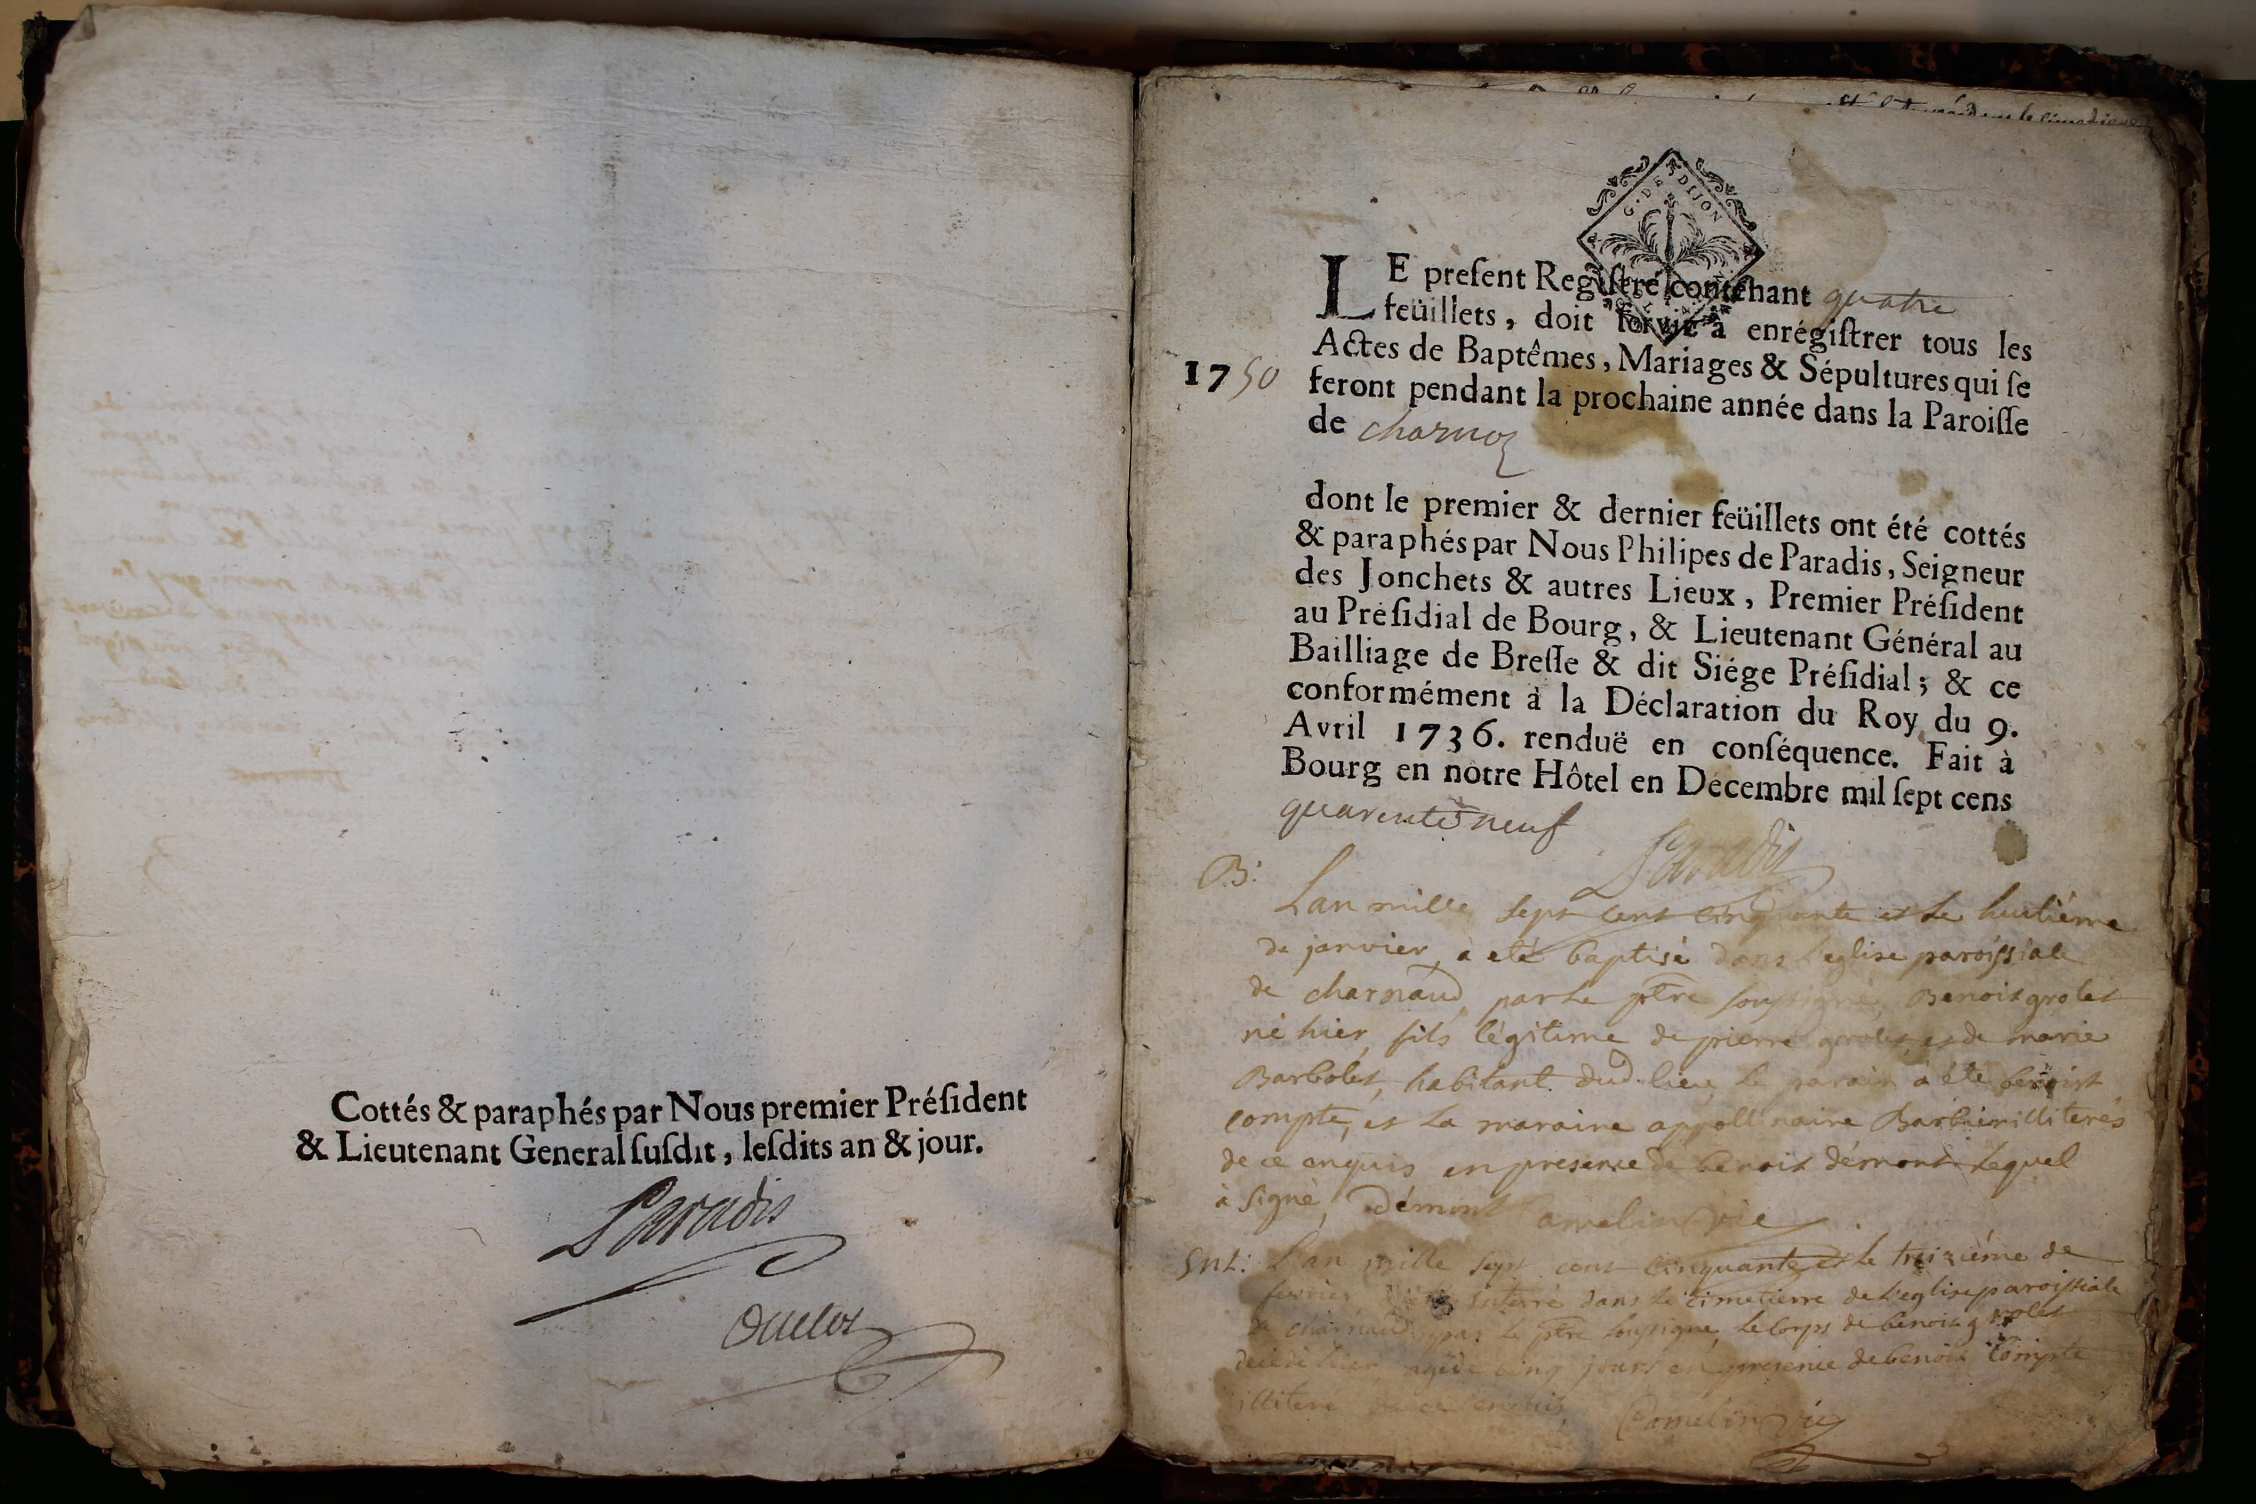 Cottés & paraphés par Nous premier Préſident
& Lieutenant General ſuſdit, leſdits an & jour.
Paradis
G. DE DIJON
LE preſent Regiſtre contenant quatre
feüillets, doit ſervir à enrégiſtrer tous les
Actes de Baptêmes, Mariages & Sépultures qui ſe
1750
feront pendant la prochaine année dans la Paroiſſe
de charnoz
dont le premier & dernier feüillets ont été cottés
& paraphés par Nous Philipes de Paradis, Seigneur
des Jonchets & autres Lieux, Premier Préſident
au Préſidial de Bourg, & Lieutenant Général au
Bailliage de Breſſe & dit Siége Préſidial; & ce
conformément à la Déclaration du Roy du 9.
Avril 1736. renduë en conſéquence. Fait à
Bourg en notre Hôtel en Décembre mil ſept cens
quarente neuf
Paradis
B:
L'an mille sept cent cinquante et le huitiéme
de janvier a eté baptisé dans l'eglise paroissiale
de charnaud par le ptre soussigné, Benoit grolet
né hier, fils légitime de pierre grolet, et de marie
Barbolet, habitant dud. lieu, le parain a été benoist
compte, et la maraine appollinaire Barbier illiterés
de ce enquis en presence de benoit démont lequel
à signé, Démont camelin vic
Snt: L'an mille sept cent cinquante et le treiziéme de
fevrier enterré dans le cimetierre de l'eglise paroissiale
de charnaud par le ptre soussigné, le corps de benoit grolet
decedé hier agé de cinq jours en presence de benoit compte
illiteré de ce enquis Camelin vic